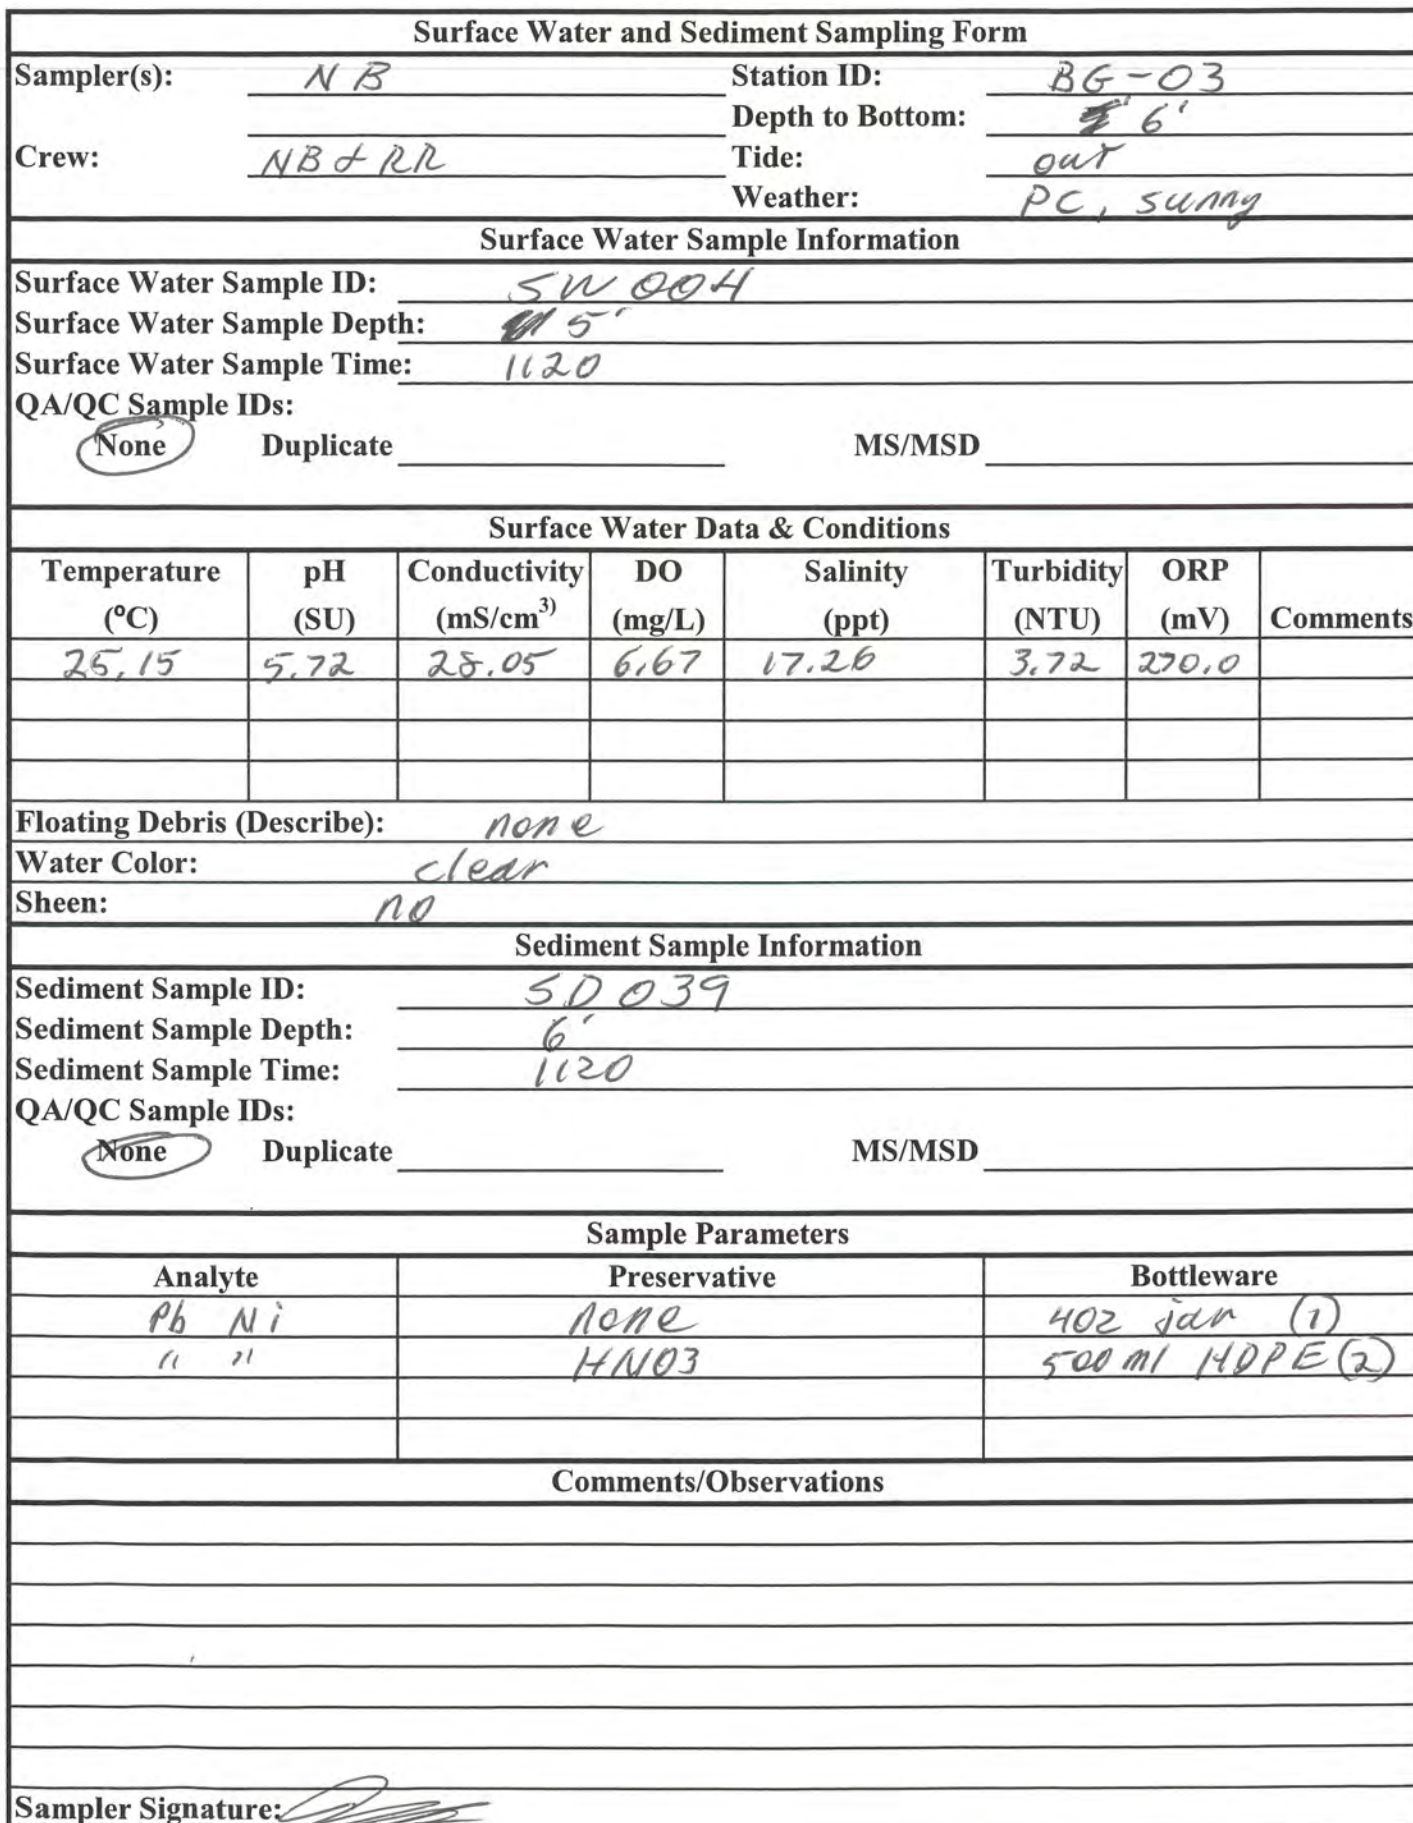 Surface Water and Sediment Sampling Form
Sampler(s): NB Station ID: BG-03
Depth to Bottom: 6'
Crew: NB & RR Tide: out
Weather: PC, sunny
Surface Water Sample Information
Surface Water Sample ID: SW004
Surface Water Sample Depth: 5'
Surface Water Sample Time: 1120
QA/QC Sample IDs:
None Duplicate MS/MSD
Surface Water Data & Conditions
Temperature pH Conductivity DO Salinity Turbidity ORP
(°C) (SU) (mS/cm3) (mg/L) (ppt) (NTU) (mV) Comments
25.15 5.72 28.05 6.67 17.26 3.72 270.0
Floating Debris (Describe): none
Water Color: clear
Sheen: no
Sediment Sample Information
Sediment Sample ID: SD039
Sediment Sample Depth: 6'
Sediment Sample Time: 1120
QA/QC Sample IDs:
None Duplicate MS/MSD
Sample Parameters
Analyte Preservative Bottleware
Pb Ni none 4oz jar (1)
" " HNO3 500 ml HDPE (2)
Comments/Observations
Sampler Signature: